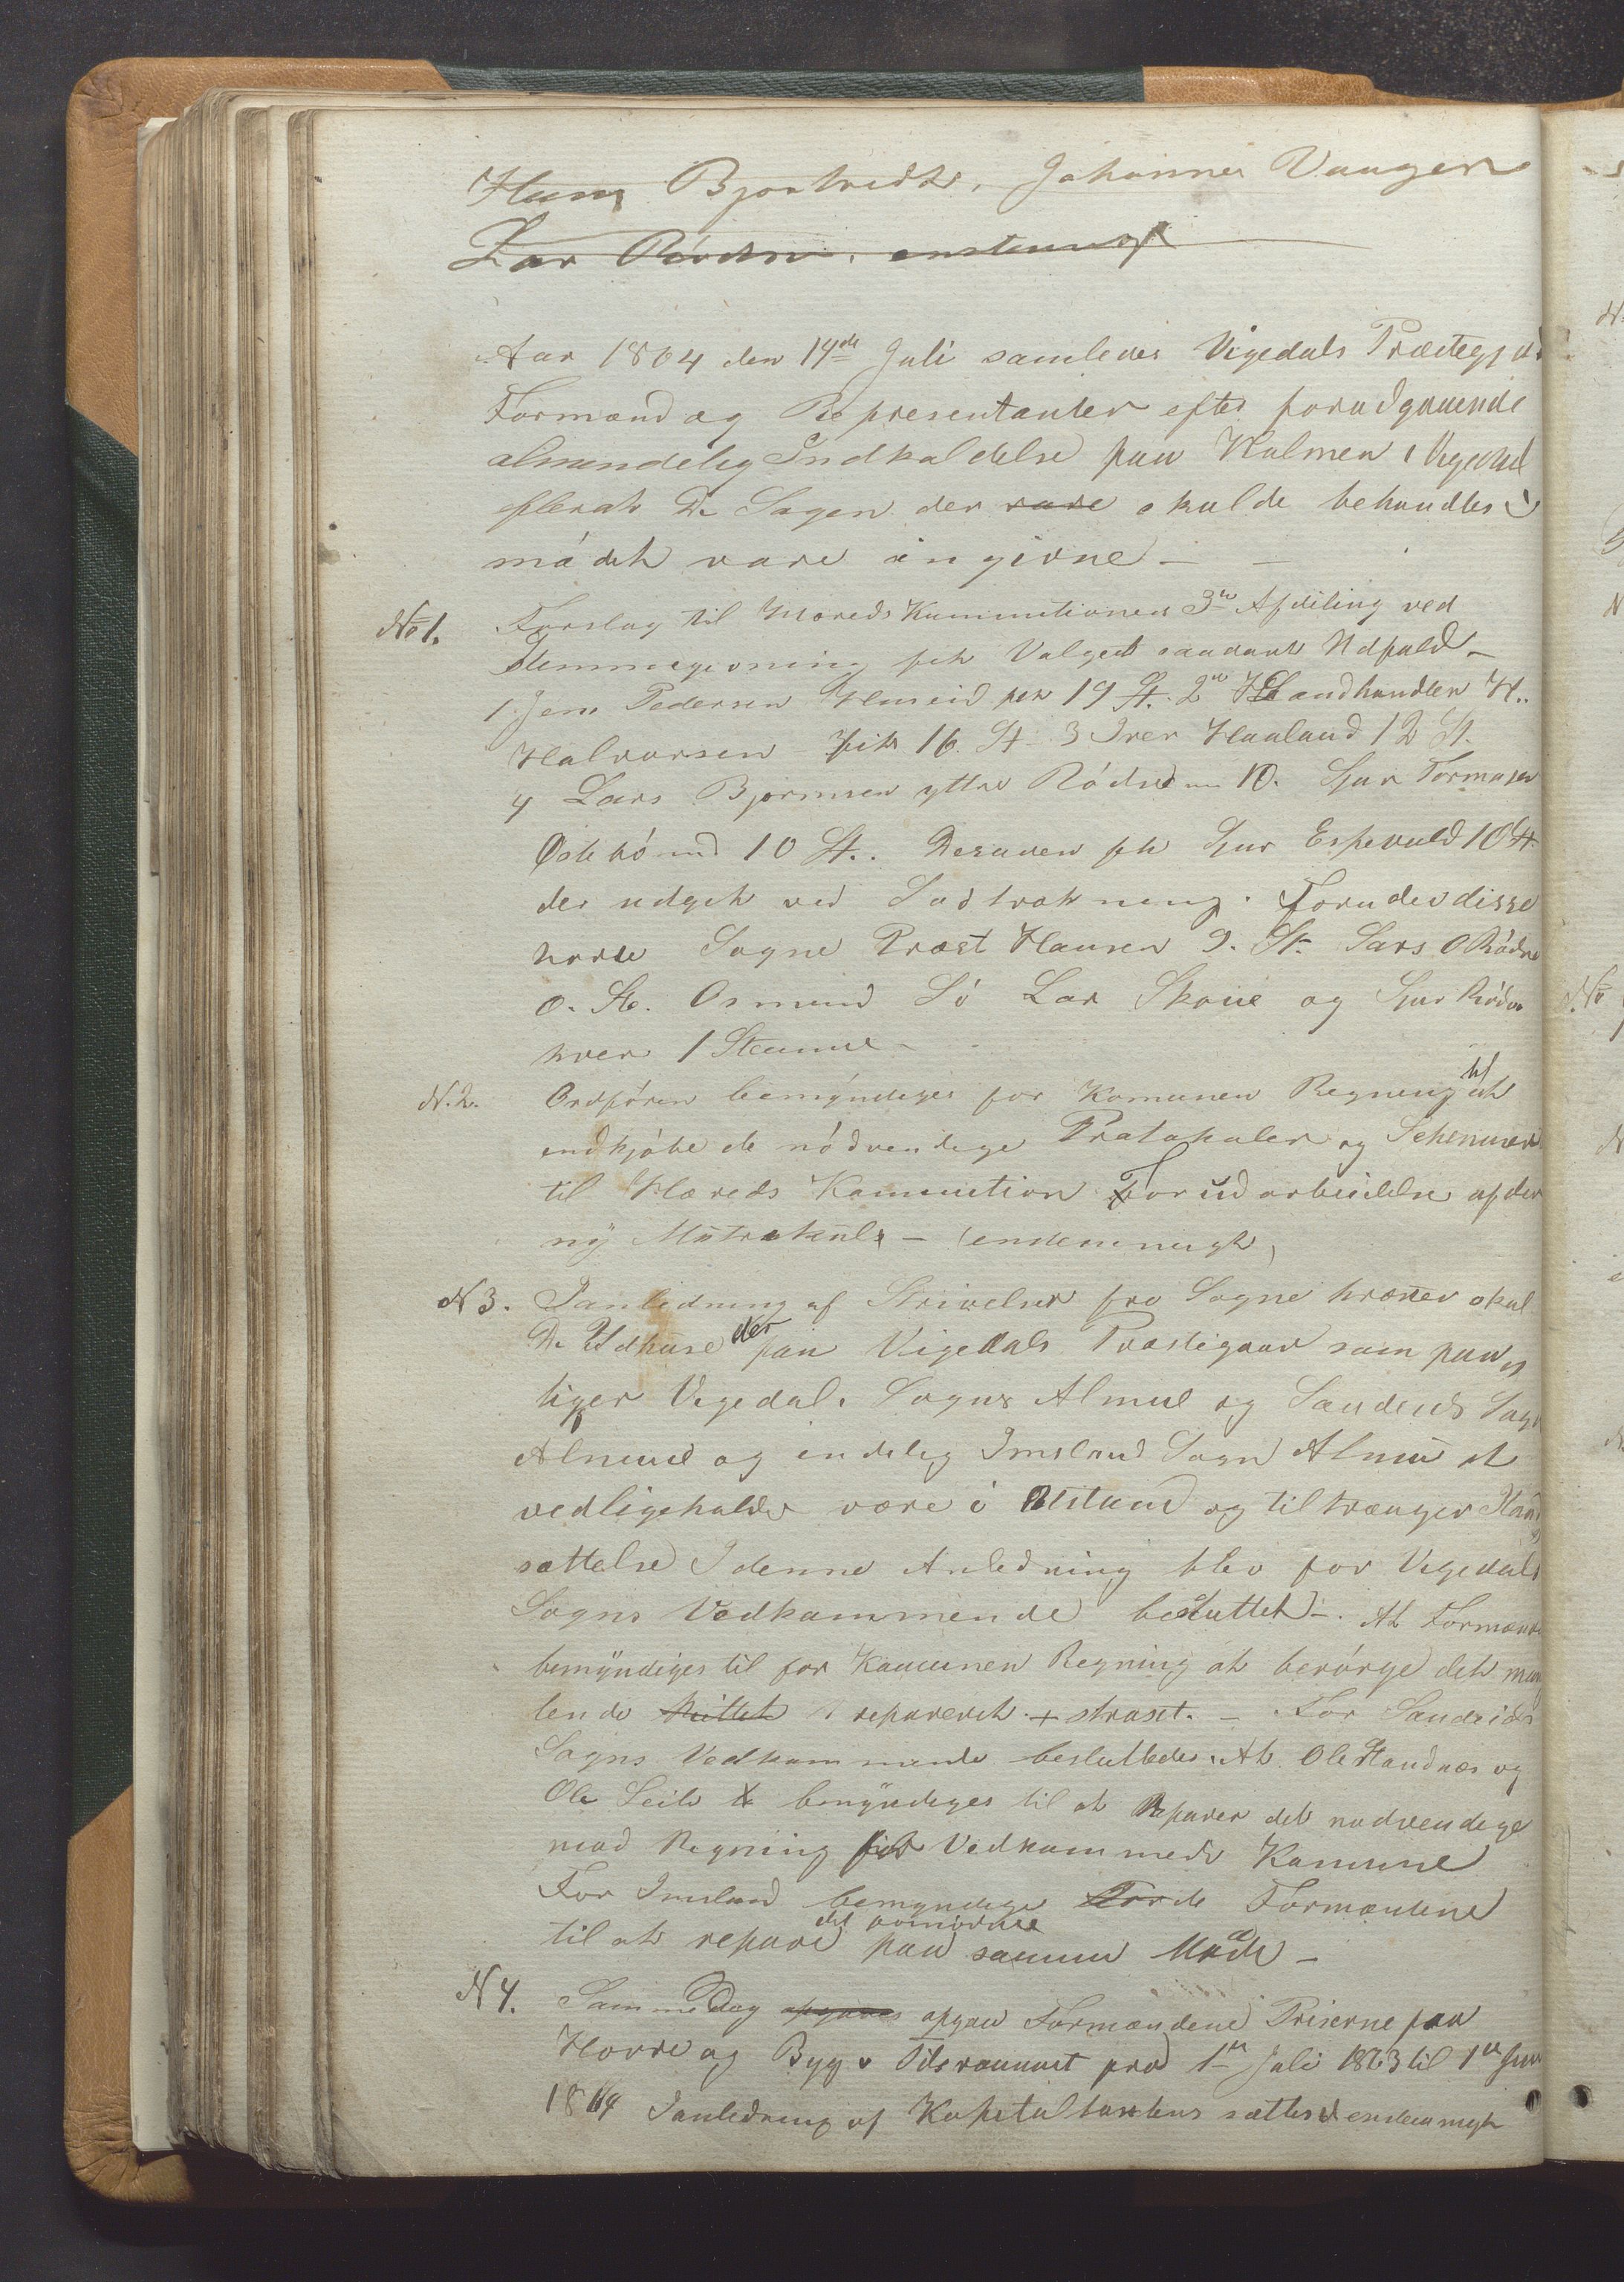 Hans Bjortvedt, Johannes Vaagen
Lar Rödne. enstemigt
Aar 1864 den 14de Juli samledes Vigedals Præstegjæ
Formænd og Representanter efter forudgaaende
almindelig Indkaldelse paa Kalmen i Vigedal
De Sager der vare skulde behandles i
mödet vare angivne -
No 1. Forslag til Hæreds Kommitionen 3de Afdiling ved
Stemmegivning fik Valget saadant Udfald -
1 Jens Pedersen Hameid fek 19 St. 2de Landhandler H.
Halvorsen fik 16 St - 3 Iver Haaland 12 St.
4 Lars Bjørnsen yttre Rödne 10. Sjur Tormosen
Östebö 10 St.. Desuden fik Sjur Espevold 10 St
der udgik ved Lodtrækning. Foruden disse
havde Sogne Præst Hansen 9. St. Lars O Rödne
St. Osmund Lö Lar Skone og Sjur Rödne
hver 1 Stemme -
N. 2. Ordfören bemyndiges for Komunen Regning til at
indkjöbe de nödvendige Protokoler og Schemaer
til Hæreds Kommition For udarbeidelse af den
ny Matrikul - enstemmigt,
N 3. I anledning af Skrivelser fra Sogne præsten skal
De Udhuse der paa Vigedals Præstegaar som paa
liger Vigedal. Sogns Almue og Sandeids Sogn
Almue og endelig Imsland Sogn Almue at
vedligeholde være i Ustand og tiltrænger Istand
sættelse I denne Anledning blev for Vigedals
Sogns Vedkommende besluttet -. At Formænde
bemyndiges til for Kommunen Regning at besörge det man
lende reparerit + straxt. - For Sandeids
Sogns Vedkommende besluttedes. At Ole Handnæs og
Ole Leite bemyndiges til at Reparer det nødvendige
mod Regning fra Vedkommede Komune
For Imsland bemyndige Formændene
til at repare det fornödne paa samme Made -
N 4. Samme Dag opgave opgav Formændene Priserne paa
Havre og Byg Tidsrummet fra 1ste Juli 1863 til 1ste Juni
1864 I anledning af Kapitaltaxtens sættes enstemmigt